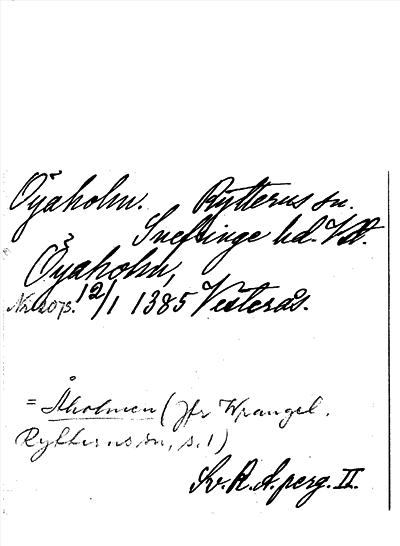 Öyaholm. Rytterns sn.
Snefringe hd. Vstm.
Öyaholm,
Nr 2073. 12/1 1385 Vesterås.
= Åholmen (Jfr Wrangel,
Rytterns sn, s. 1)
Sv. R. A. perg. II.